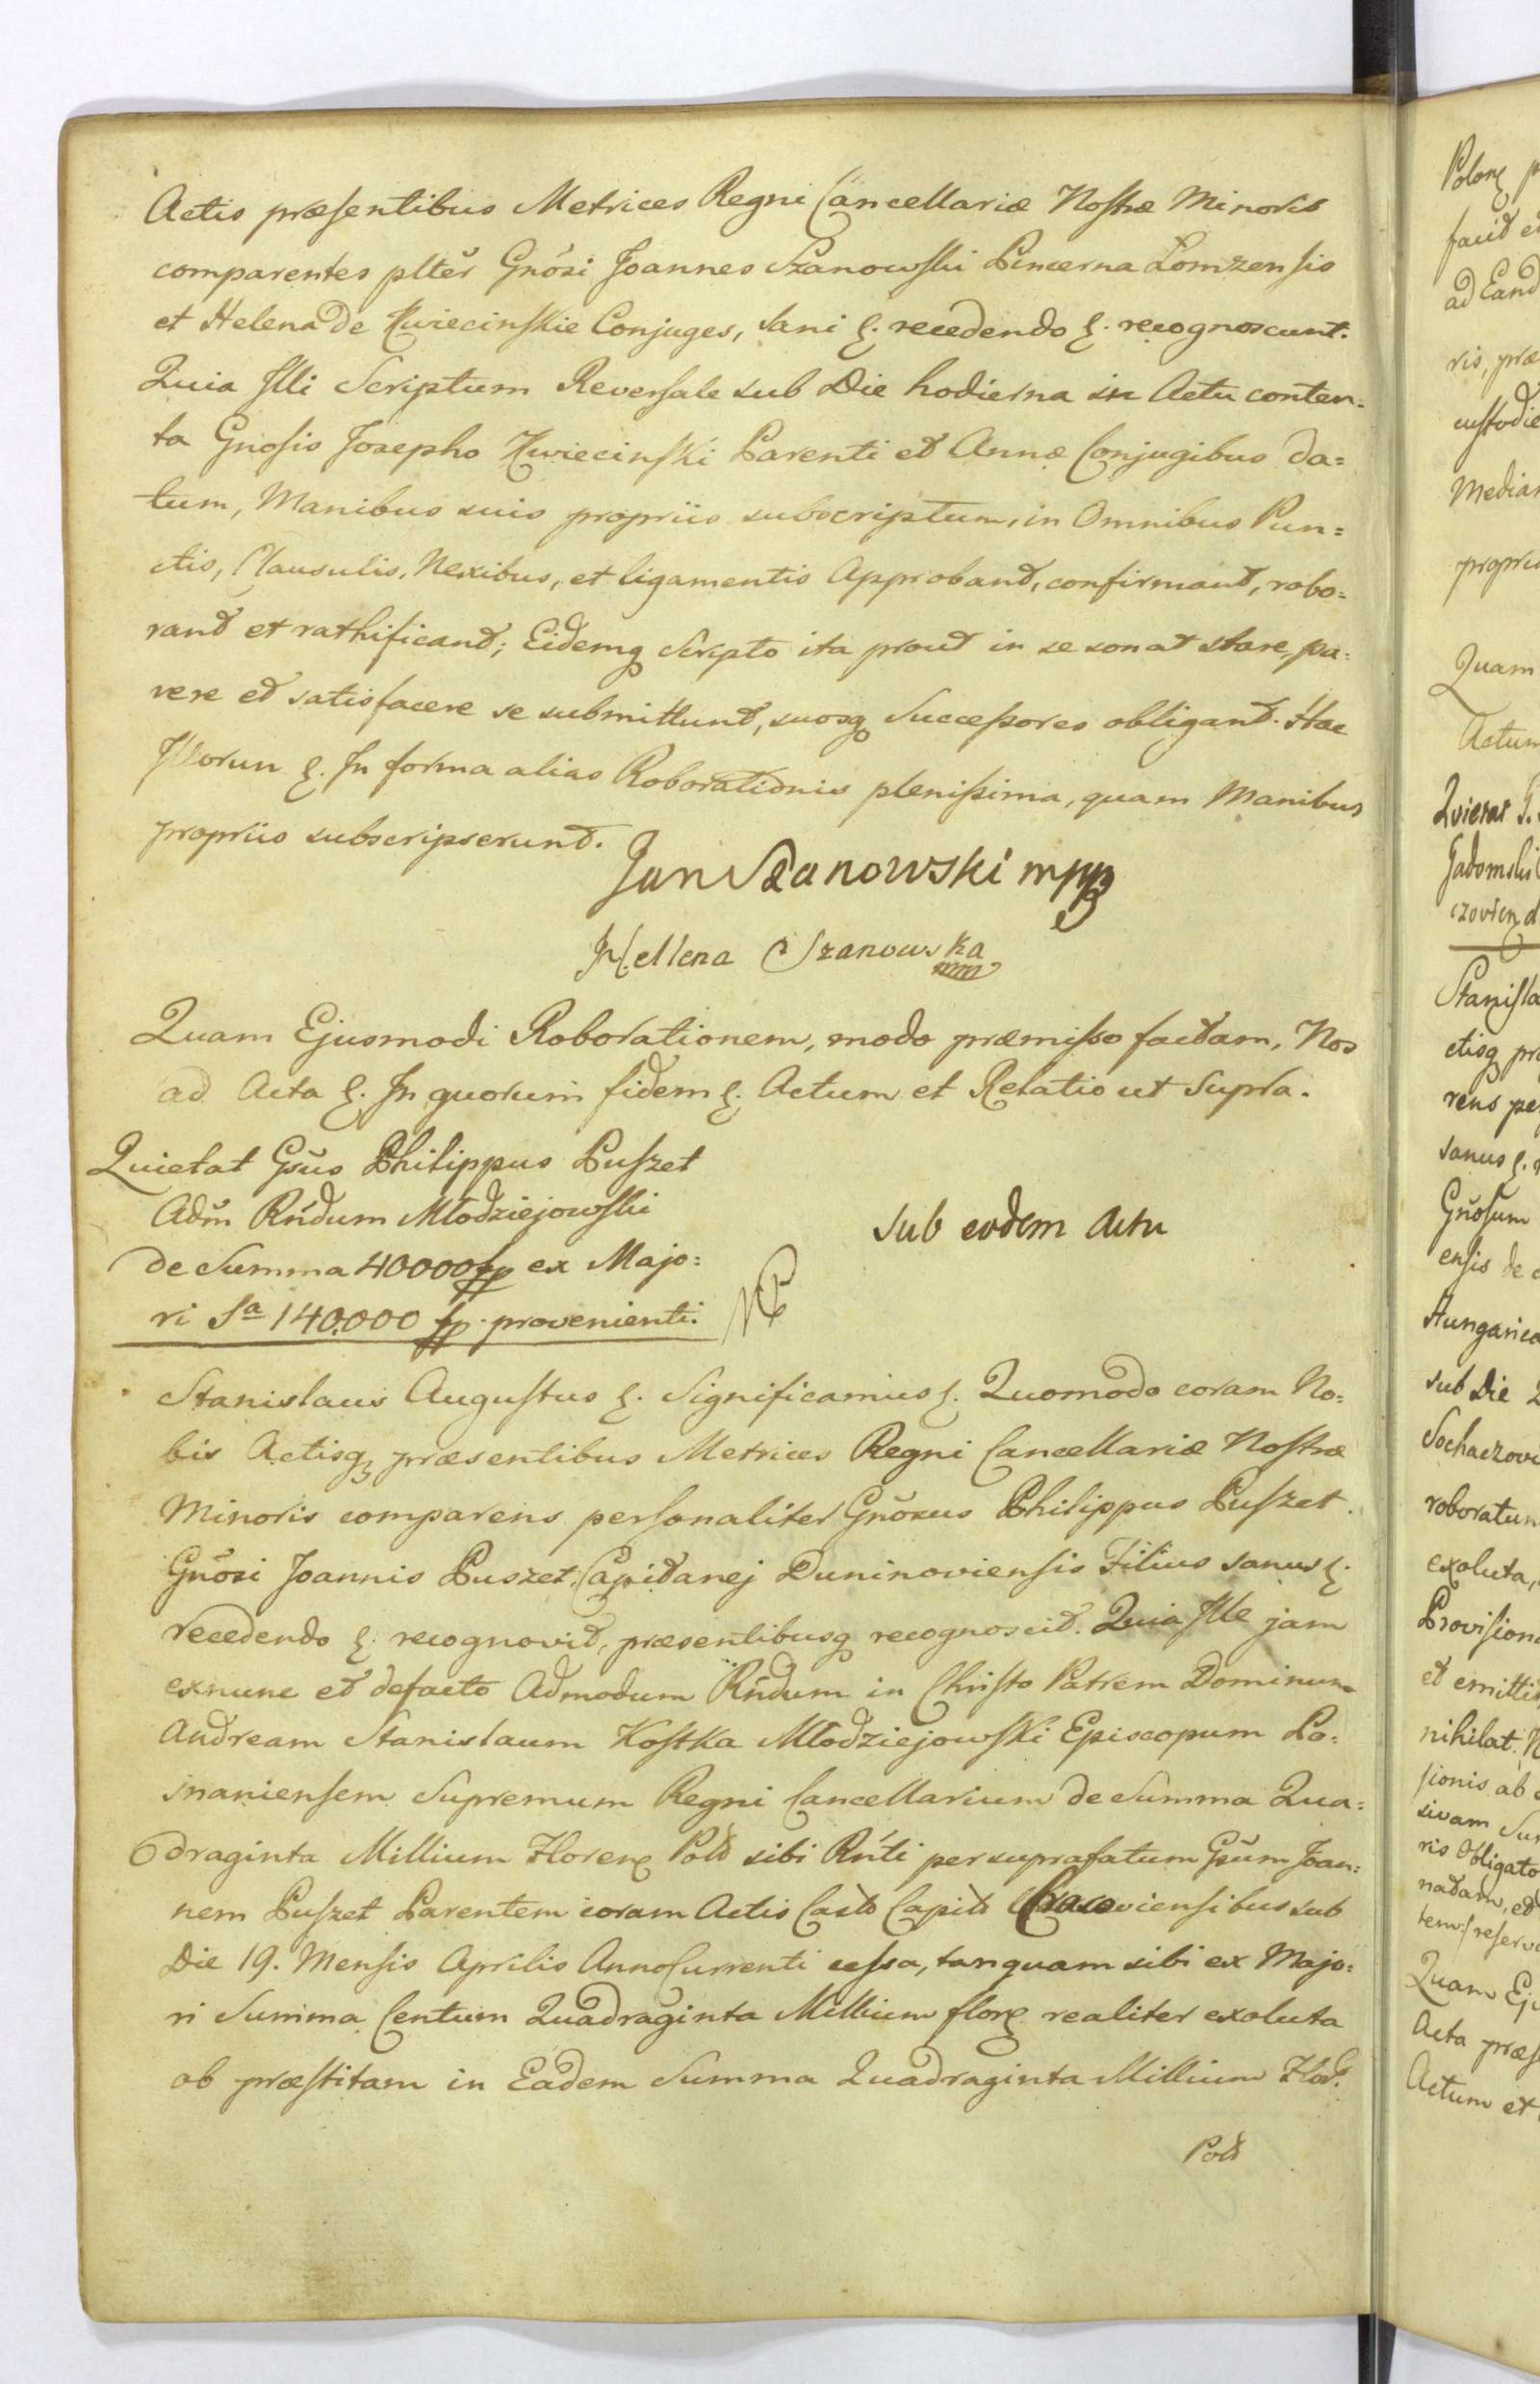 Actis præsentibus Metrices Regni Cancellariæ Nostræ Minoris
comparentes plter Gnosi Joannes Szanowski Pincerna Lomzensis
et Helena de Kwiecinskie Conjuges, sani &. recedendo &. recognoscunt.
Quia Illi Scriptum Reversale sub Die hodierna in Actu conten-
ta Gnosis Josepho Kwiecinski Parenti et Annæ Conjugibus da=
tum, Manibus suis propriis subscriptum, in Omnibus Pun=
ctis, Clausulis, Nexibus, et ligamentis Approbant, confirmant, robo=
rant et rathificant; Eidemq Scripto ita prout in se sonat stare, pa=
rere et satisfacere se submittunt, suosq Successores obligant. Hac
Illorun &. In forma alias Roborationis plenissima, quam Manibus
propriis subscripserunt.
Jan Szanowski mpp
Hellena Szanowska
Quam Ejusmodi Roborationem, modo præmisso factam, Nos
ad Acta &. In quorum fidem &. Actum et Relatio ut Supra.
Quietat Gsus Philippus Puszet
Adm Rndum Młodziejowski
de Summa 40000 fp ex Majo:
ri Sa 140.000 fp. provenienti.
Sub eodem Actu
Stanislaus Augustus &. Significamus &. Quomodo coram No=
bis Actisq præsentibus Metrices Regni Cancellariæ Nostræ
Minoris comparens personaliter Gnosus Philippus Puszet
Gnosi Joannis Puszet Capitanej Duninoviensis Filius sanus &.
recedendo &. recognovit, præsentibusq recognoscit. Quia Ille jam
exnunc et defacto Admodum Rndum in Christo Patrem Dominum
Andream Stanislaum Kostka Młodziejowski Episcopum Po=
snaniensem Supremum Regni Cancellarium de Summa Qua=
draginta Millium Floren Pol sibi Rnti per suprafatum Gsum Joan=
nem Puszet Parentem coram Actis Casto Capit Cracoviensibus sub
Die 19. Mensis Aprilis Anno Currenti cessa, tanquam sibi ex Majo=
ri Summa Centum Quadraginta Millium flor realiter exoluta
ob præstitam in Eadem Summa Quadraginta Millium Flor.
Pol
Polon
ad Eand
ris, præ
custodie
Median
propri
Quam
Actum
Gadomski
Stanisla
etisq pr
rens pe
sanus &.
Gnosum
ensis de
Hungarica
sub Die
Sochaczovi
roboratum
exoluta,
Provision
et emitti
nihilat.
sionis ab
sivam Su
ris Obligato
natam, et
tem reserv
Quam Ej
Acta præs
Actum et